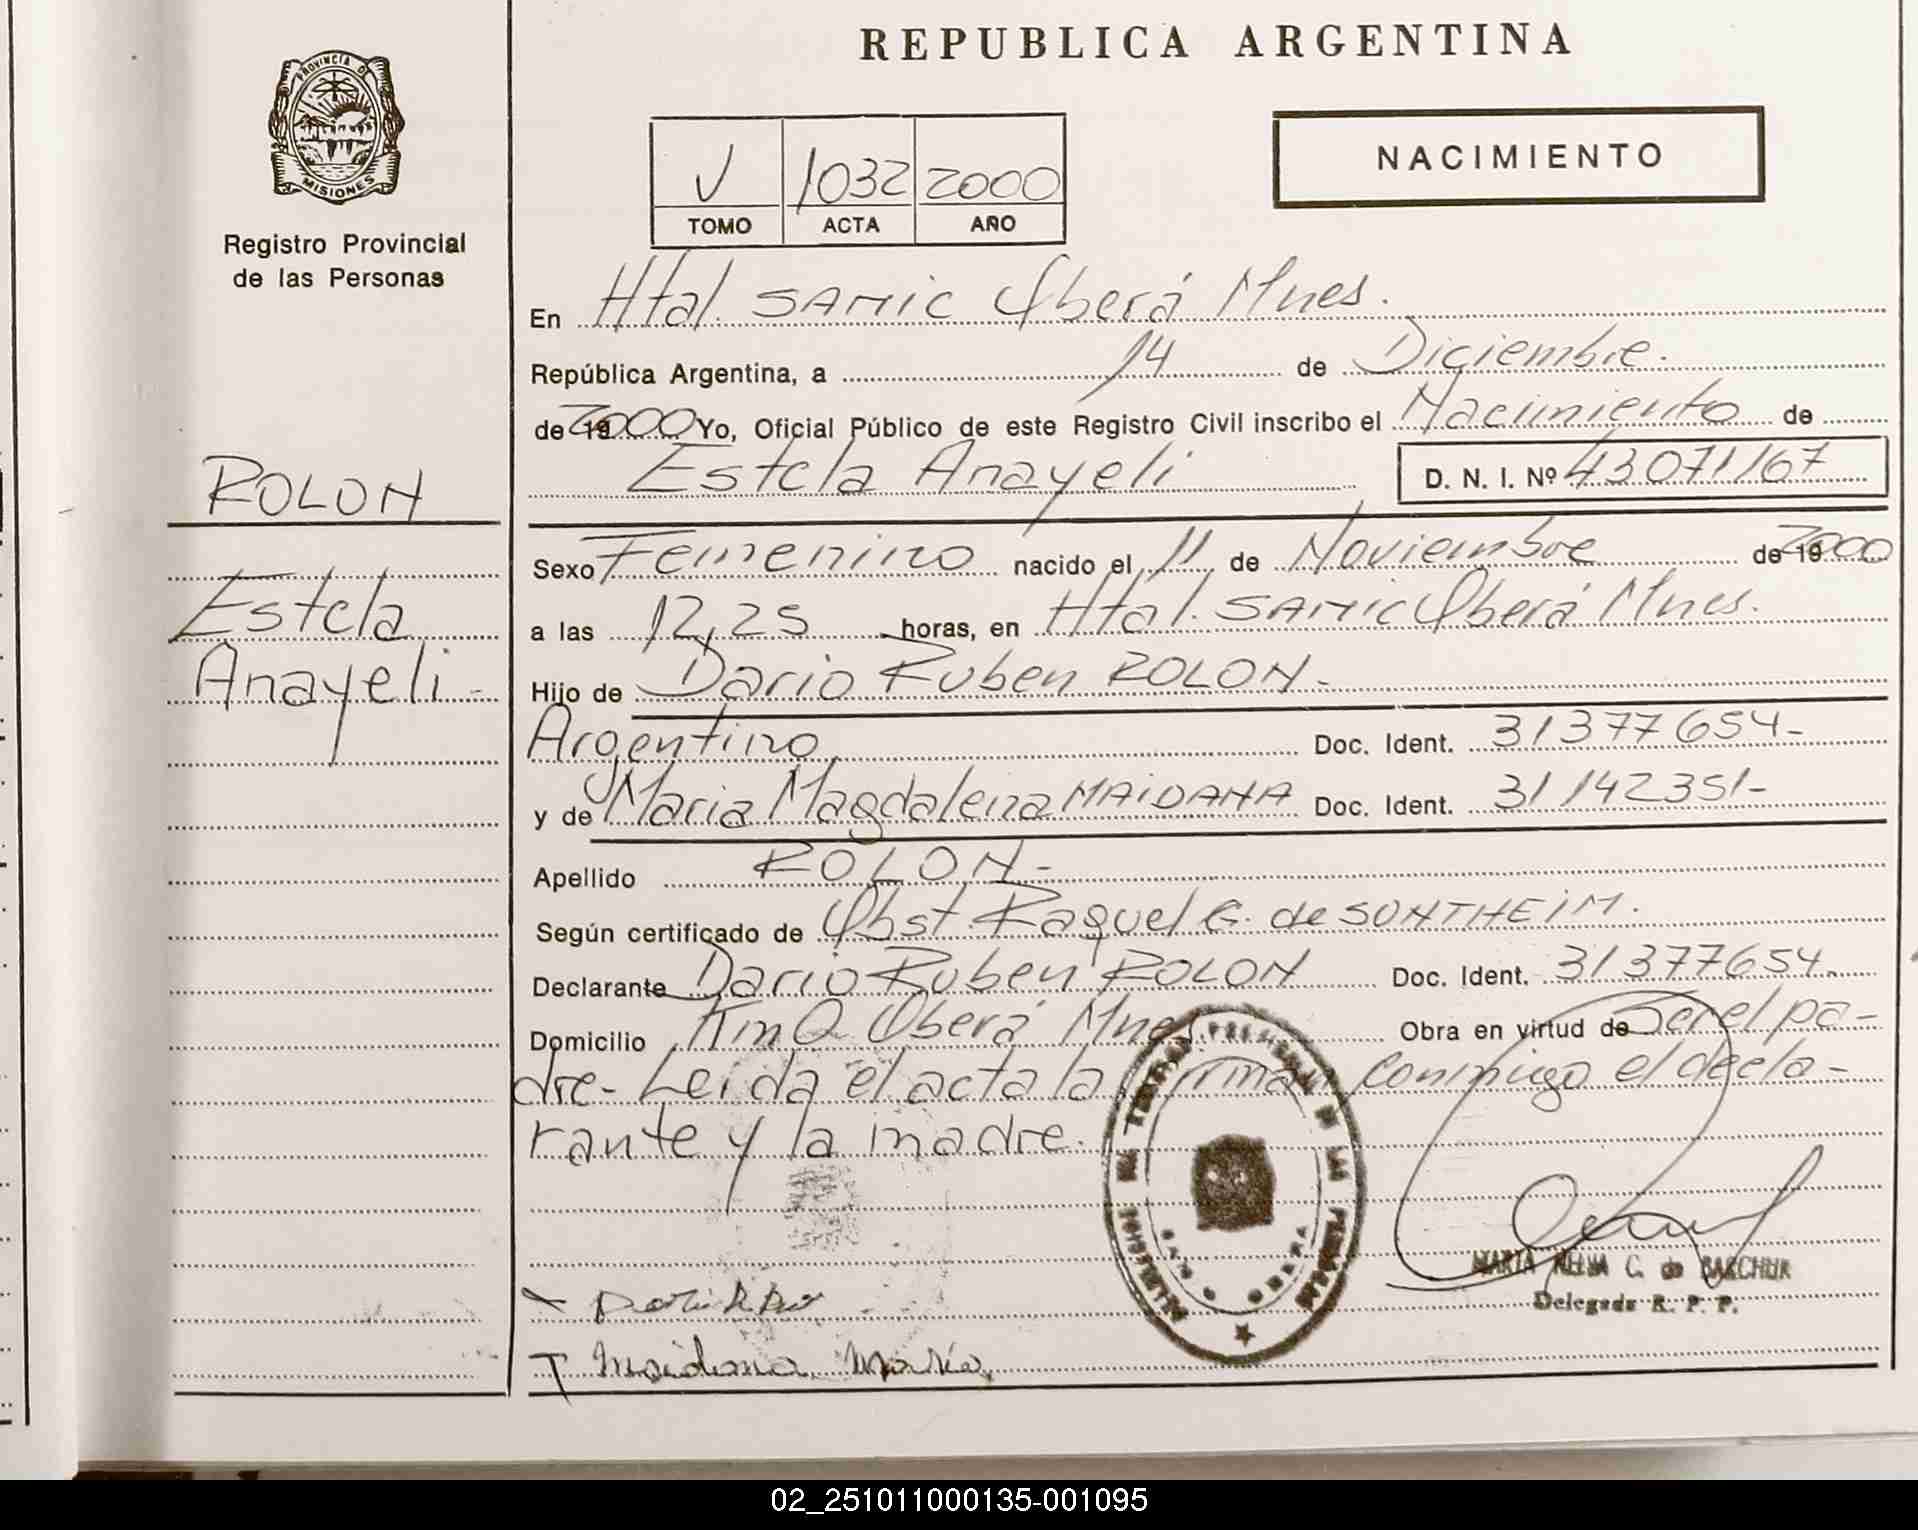 REPUBLICA ARGENTINA
PROVINCIA DE
MISIONES
Registro Provincial
de las Personas
V 1032 2000
TOMO ACTA AÑO
NACIMIENTO
En Htal. SAMIC Oberá Mnes.
República Argentina, a 14 de Diciembre.
de 19 2000 Yo, Oficial Público de este Registro Civil inscribo el Nacimiento de
Estela Anayeli D. N. I. Nº 43071167
ROLON
Estela
Anayeli -
Sexo Femenino nacido el 11 de Noviembre de 19 2000
a las 12,25 horas, en Htal. SAMIC Oberá Mnes.
Hijo de Dario Ruben ROLON -
Argentino Doc. Ident. 31377654-
y de Maria Magdalena MAIDANA Doc. Ident. 31142351-
Apellido ROLON -
Según certificado de Obst. Raquel G. de SONTHEIM.
Declarante Dario Ruben ROLON Doc. Ident. 31377654.
Domicilio Km 0 Oberá Mnes. Obra en virtud de Ser el pa-
dre- Leida el acta la firman conmigo el decla-
rante y la madre.
MARIA C. de
Delegada R. P. P.
Maidana Maria
02_251011000135-001095